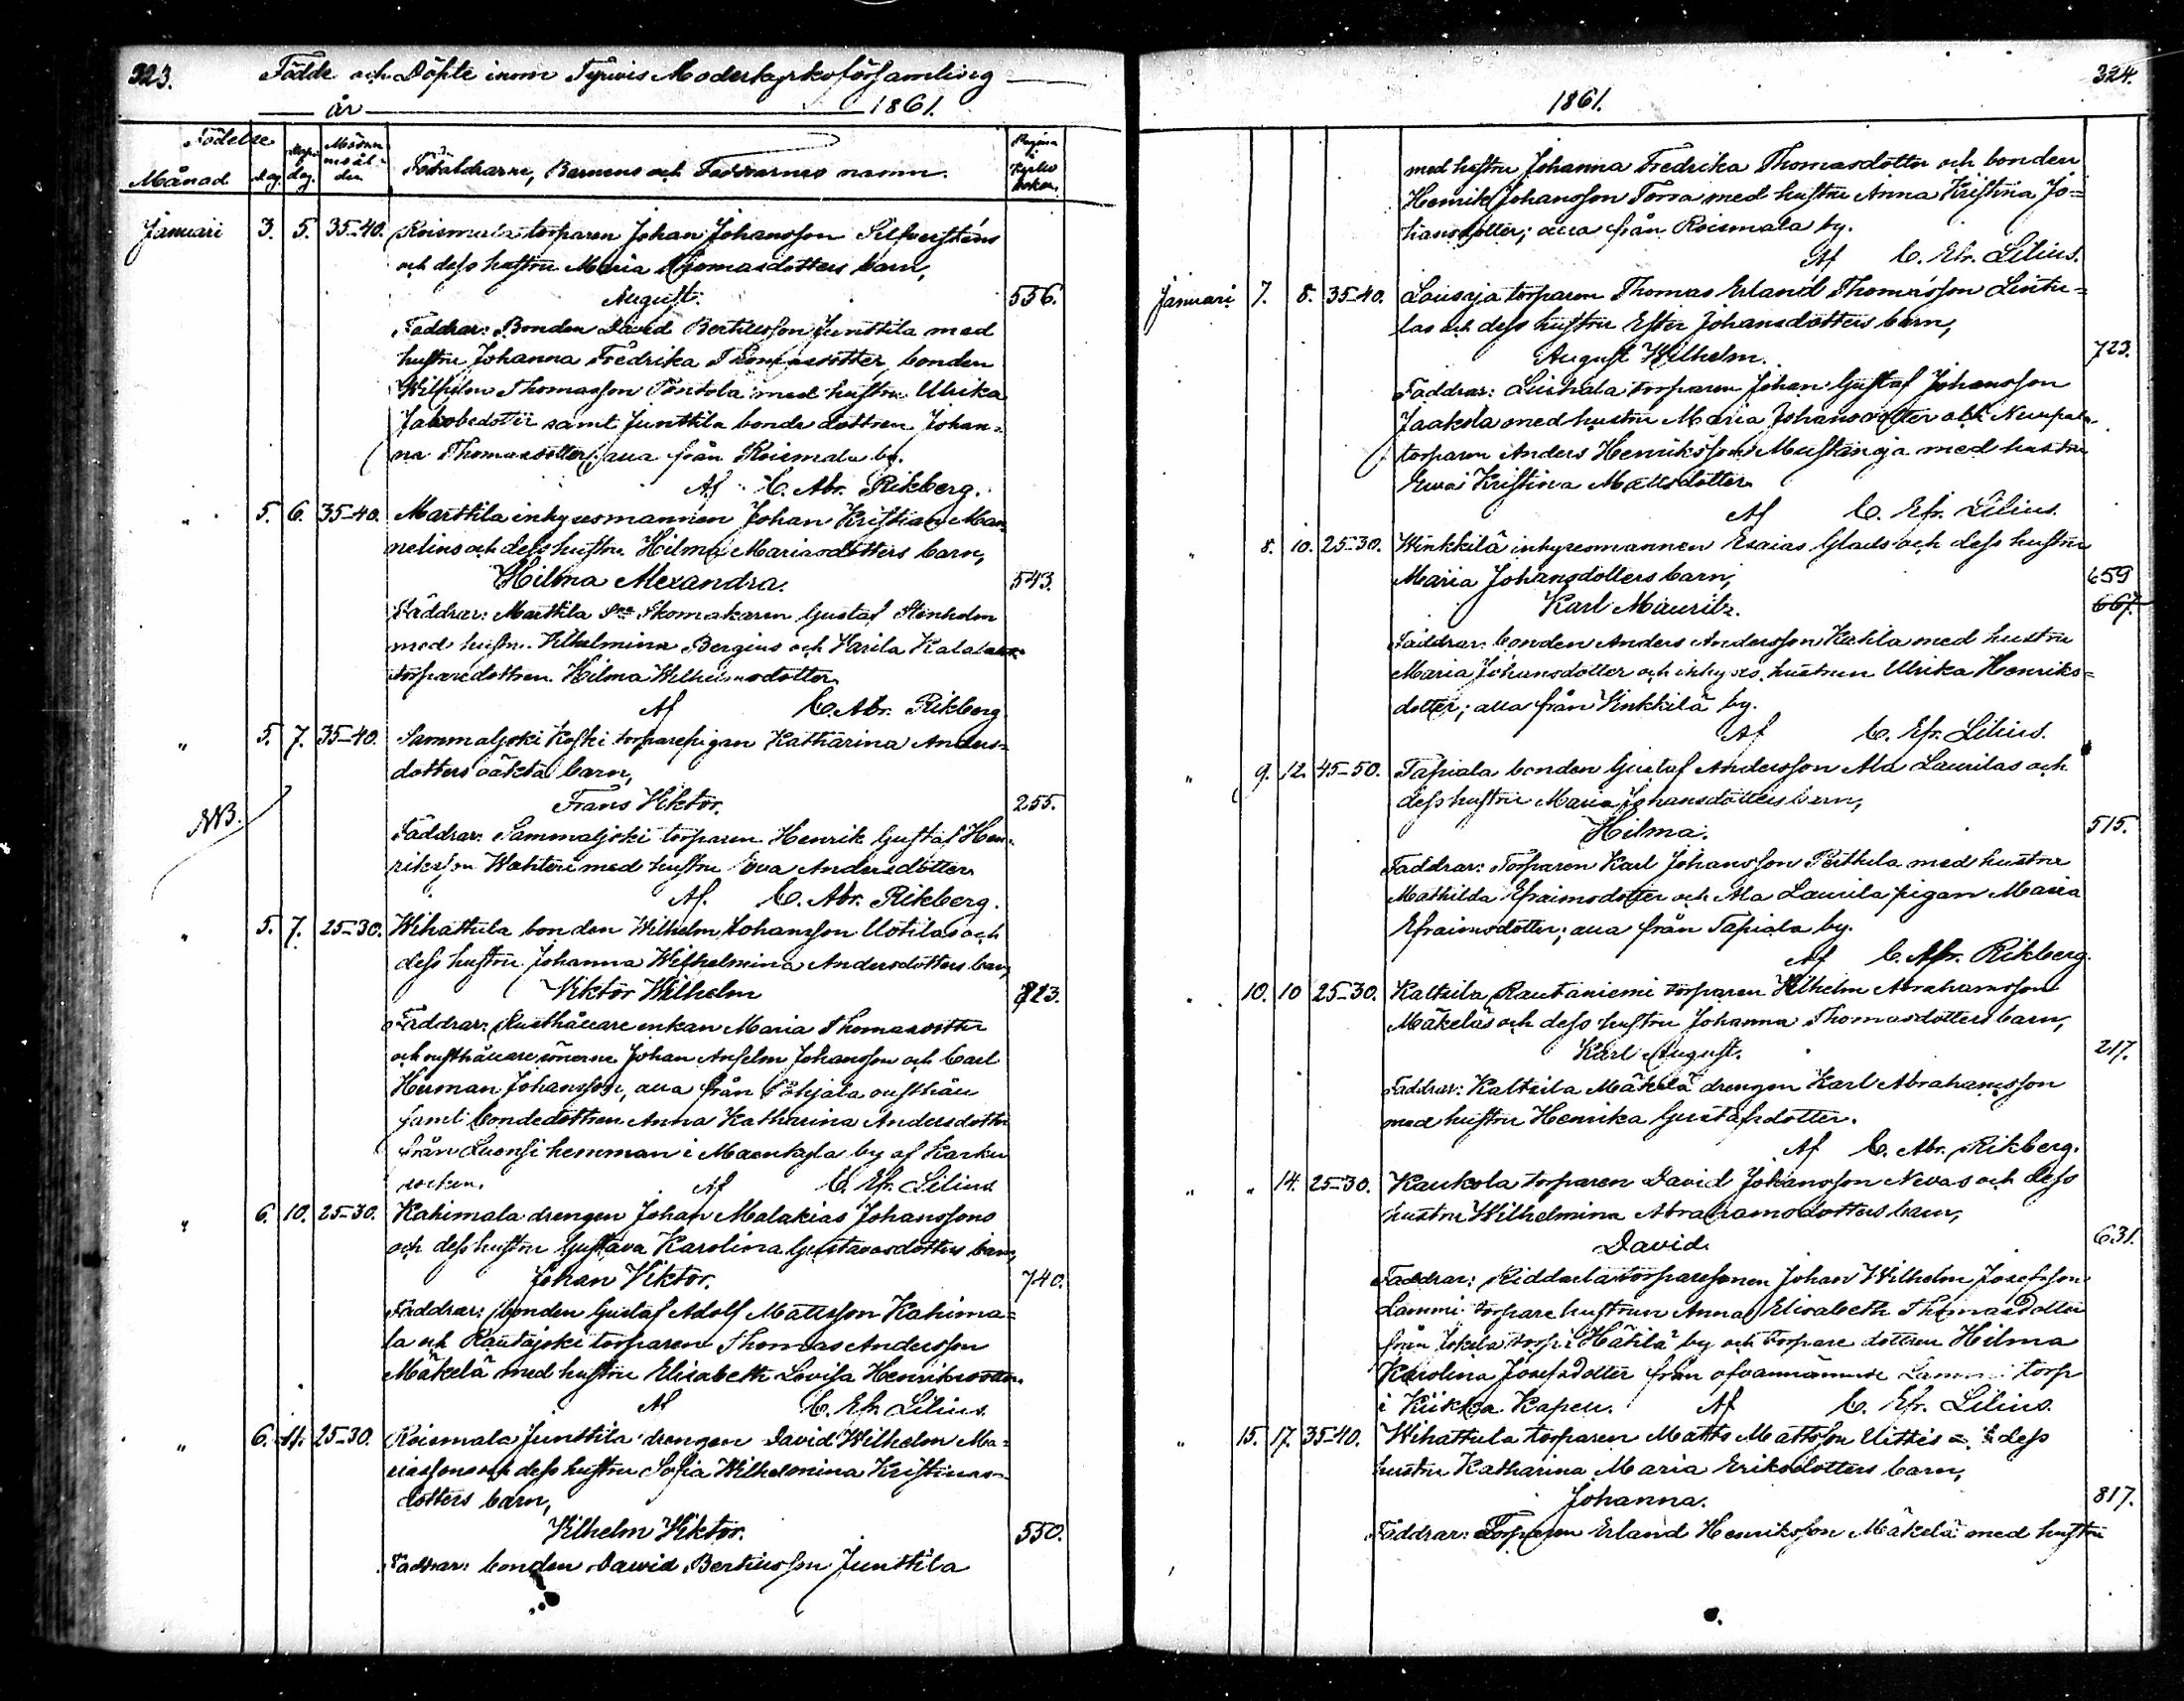 323.
Födde och Döpte inom Tyrvis Moderkyrkoförsamling
år 1861.
Födelse
Månad
dag.
dag.
Modrens ålder
Föräldrarne, Barnens och Faddrarnes namn.
Pagina i Kyrkoboken.
Januari 3. 5. 35-40. Roismala torparen Johan Johansson Silfversténs
och dess hustru Maria Thomasdotters barn,
August. 556.
Faddrar: Bonden David Bertilsson Junttila med
hustru Johanna Fredrika Thomasdotter, bonden
Wilhelm Thomasson Pöntola med hustru Ulrika
Jakobsdotter samt Junttila bonde dottren Johan=
na Thomasdotter, alla från Roismala by.
Af C. Abr. Rikberg.
" 5. 6. 35-40. Marttila inhysesmannen Johan Kristian Man=
nelins och dess hustru Hilma Mariasdotters barn,
Hilma Alexandra. 543.
Faddrar: Marttila Skomakaren Gustaf Stenholm
med hustru Vilhelmina Bergius och Varila
torparedottren Hilma Wilhelmsdotter.
Af C. Abr. Rikberg
" 5. 7. 35-40. Sammaljoki Koski torparepigan Katharina Anders=
dotters oäkta barn,
Frans Viktor. 255.
NB.
Faddrar: Sammaljoki torparen Henrik Gustaf Hen=
riksson Wahteri med hustru Eva Andersdotter.
Af. C. Abr. Rikberg.
" 5. 7. 25-30. Wihattula bonden Wilhelm Johansson Uotilas och
dess hustru Johanna Wilhelmina Andersdotters barn,
Viktor Wilhelm 823.
Faddrar: Rusthållare enkan Maria Thomasdotter
och rusthållare sönerne Johan Anselm Johansson och Carl
Herman Johansson, alla från rusthåll
samt bondedottren Anna Katharina Andersdotter
från Luonsi hemman i by af Karku
socken. Af C. Efr. Lilius
" 6. 10. 25-30. Kahimala drengen Johan Malakias Johanssons
och dess hustru Gustava Karolina Gustavasdotters barn,
Johan Viktor. 740.
Faddrar: bonden Gustaf Adolf Mattsson Kahima=
la och Rautajoki torparen Thomas Andersson
Mäkelä med hustru Elisabeth Lovisa Henriksdotter.
Af C. Efr. Lilius
" 6. 11. 25-30. Roismala Junttila drengen David Wilhelm Ma=
riassons och dess hustru Sofia Wilhelmina Kristinas=
dotters barn,
Vilhelm Viktor. 550.
Faddrar: bonden David Bertilsson Junttila
324.
1861.
med hustru Johanna Fredrika Thomasdotter och bonden
Henrik Johansson Torra med hustru Anna Kristina Jo=
hansdotter; alla från Roismala by.
Af C. Efr. Lilius.
Januari 7. 8. 35-40. Lousaja torparen Thomas Erland Thomasson Lintu=
las och dess hustru Ester Johansdotters barn,
August Wilhelm. 723.
Faddrar: torparen Johan Gustaf Johansson
Jaakola med hustru Maria Johansdotter och
torparen Anders Henriksson Mustanoja med hustru
Eva Kristina Mattsdotter
Af C. Efr. Lilius.
" 8. 10. 25-30. Winkkilä inhysesmannen Esaias Glads och dess hustru
Maria Johansdotters barn, 659
Karl Mauritz. 667.
Faddrar: bonden Anders Andersson Katila med hustru
Maria Johansdotter och inhyses hustrun Ulrika Henriks=
dotter; alla från Vinkkilä by.
Af C. Efr. Lilius.
" 9. 12. 45-50. Tapiala bonden Gustaf Andersson Ala Laurilas och
dess hustru Maria Johansdotters barn,
Hilma. 515.
Faddrar: Torparen Karl Johansson Perttula med hustru
Mathilda Efraimsdotter och Ala Laurila pigan Maria
Efraimsdotter; alla från Tapiala by.
Af C. Abr. Rikberg.
" 10. 10 25-30. Kaltsila Rautaniemi torparen Vilhelm Abrahamsson
Mäkeläs och dess hustru Johanna Thomasdotters barn,
Karl August. 217.
Faddrar: Kaltsila Mäkelä drengen Karl Abrahamsson
med hustru Henrika Gustafsdotter.
Af C. Abr. Rikberg.
" " 14. 25-30. Kaukola torparen David Johansson Nevas och dess
hustru Wilhelmina Abrahamsdotters barn,
David. 631.
Faddrar: Riddaila torparesonen Johan Wilhelm Josefsson
Lammi torpare hustrun Anna Elisabeth Thomasdotter
från torp i Häkilä by och torpare dottren Hilma
Karolina Josefsdotter från ofvannämnde Lammi torp
i Kiikka Kapell. Af C. Efr. Lilius.
" 15. 17. 35-40. Wihattula torparen Matts Mattsson Uittis & dess
hustru Katharina Maria Eriksdotters barn,
Johanna. 817.
Faddrar: Torparen Erland Henriksson Mäkelä med hustru